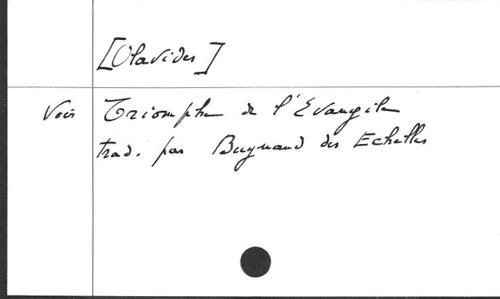 [Olavides]
Voir Triomphe de l'Evangile
trad. par Buynand des Echelles